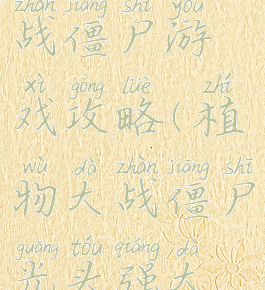 zhàn jiāng shī yóu
战僵尸游
xì gōng lüè zhí
戏攻略(植
wù dà zhàn jiāng shī
物大战僵尸
guāng tóu qiáng dà
光头强大